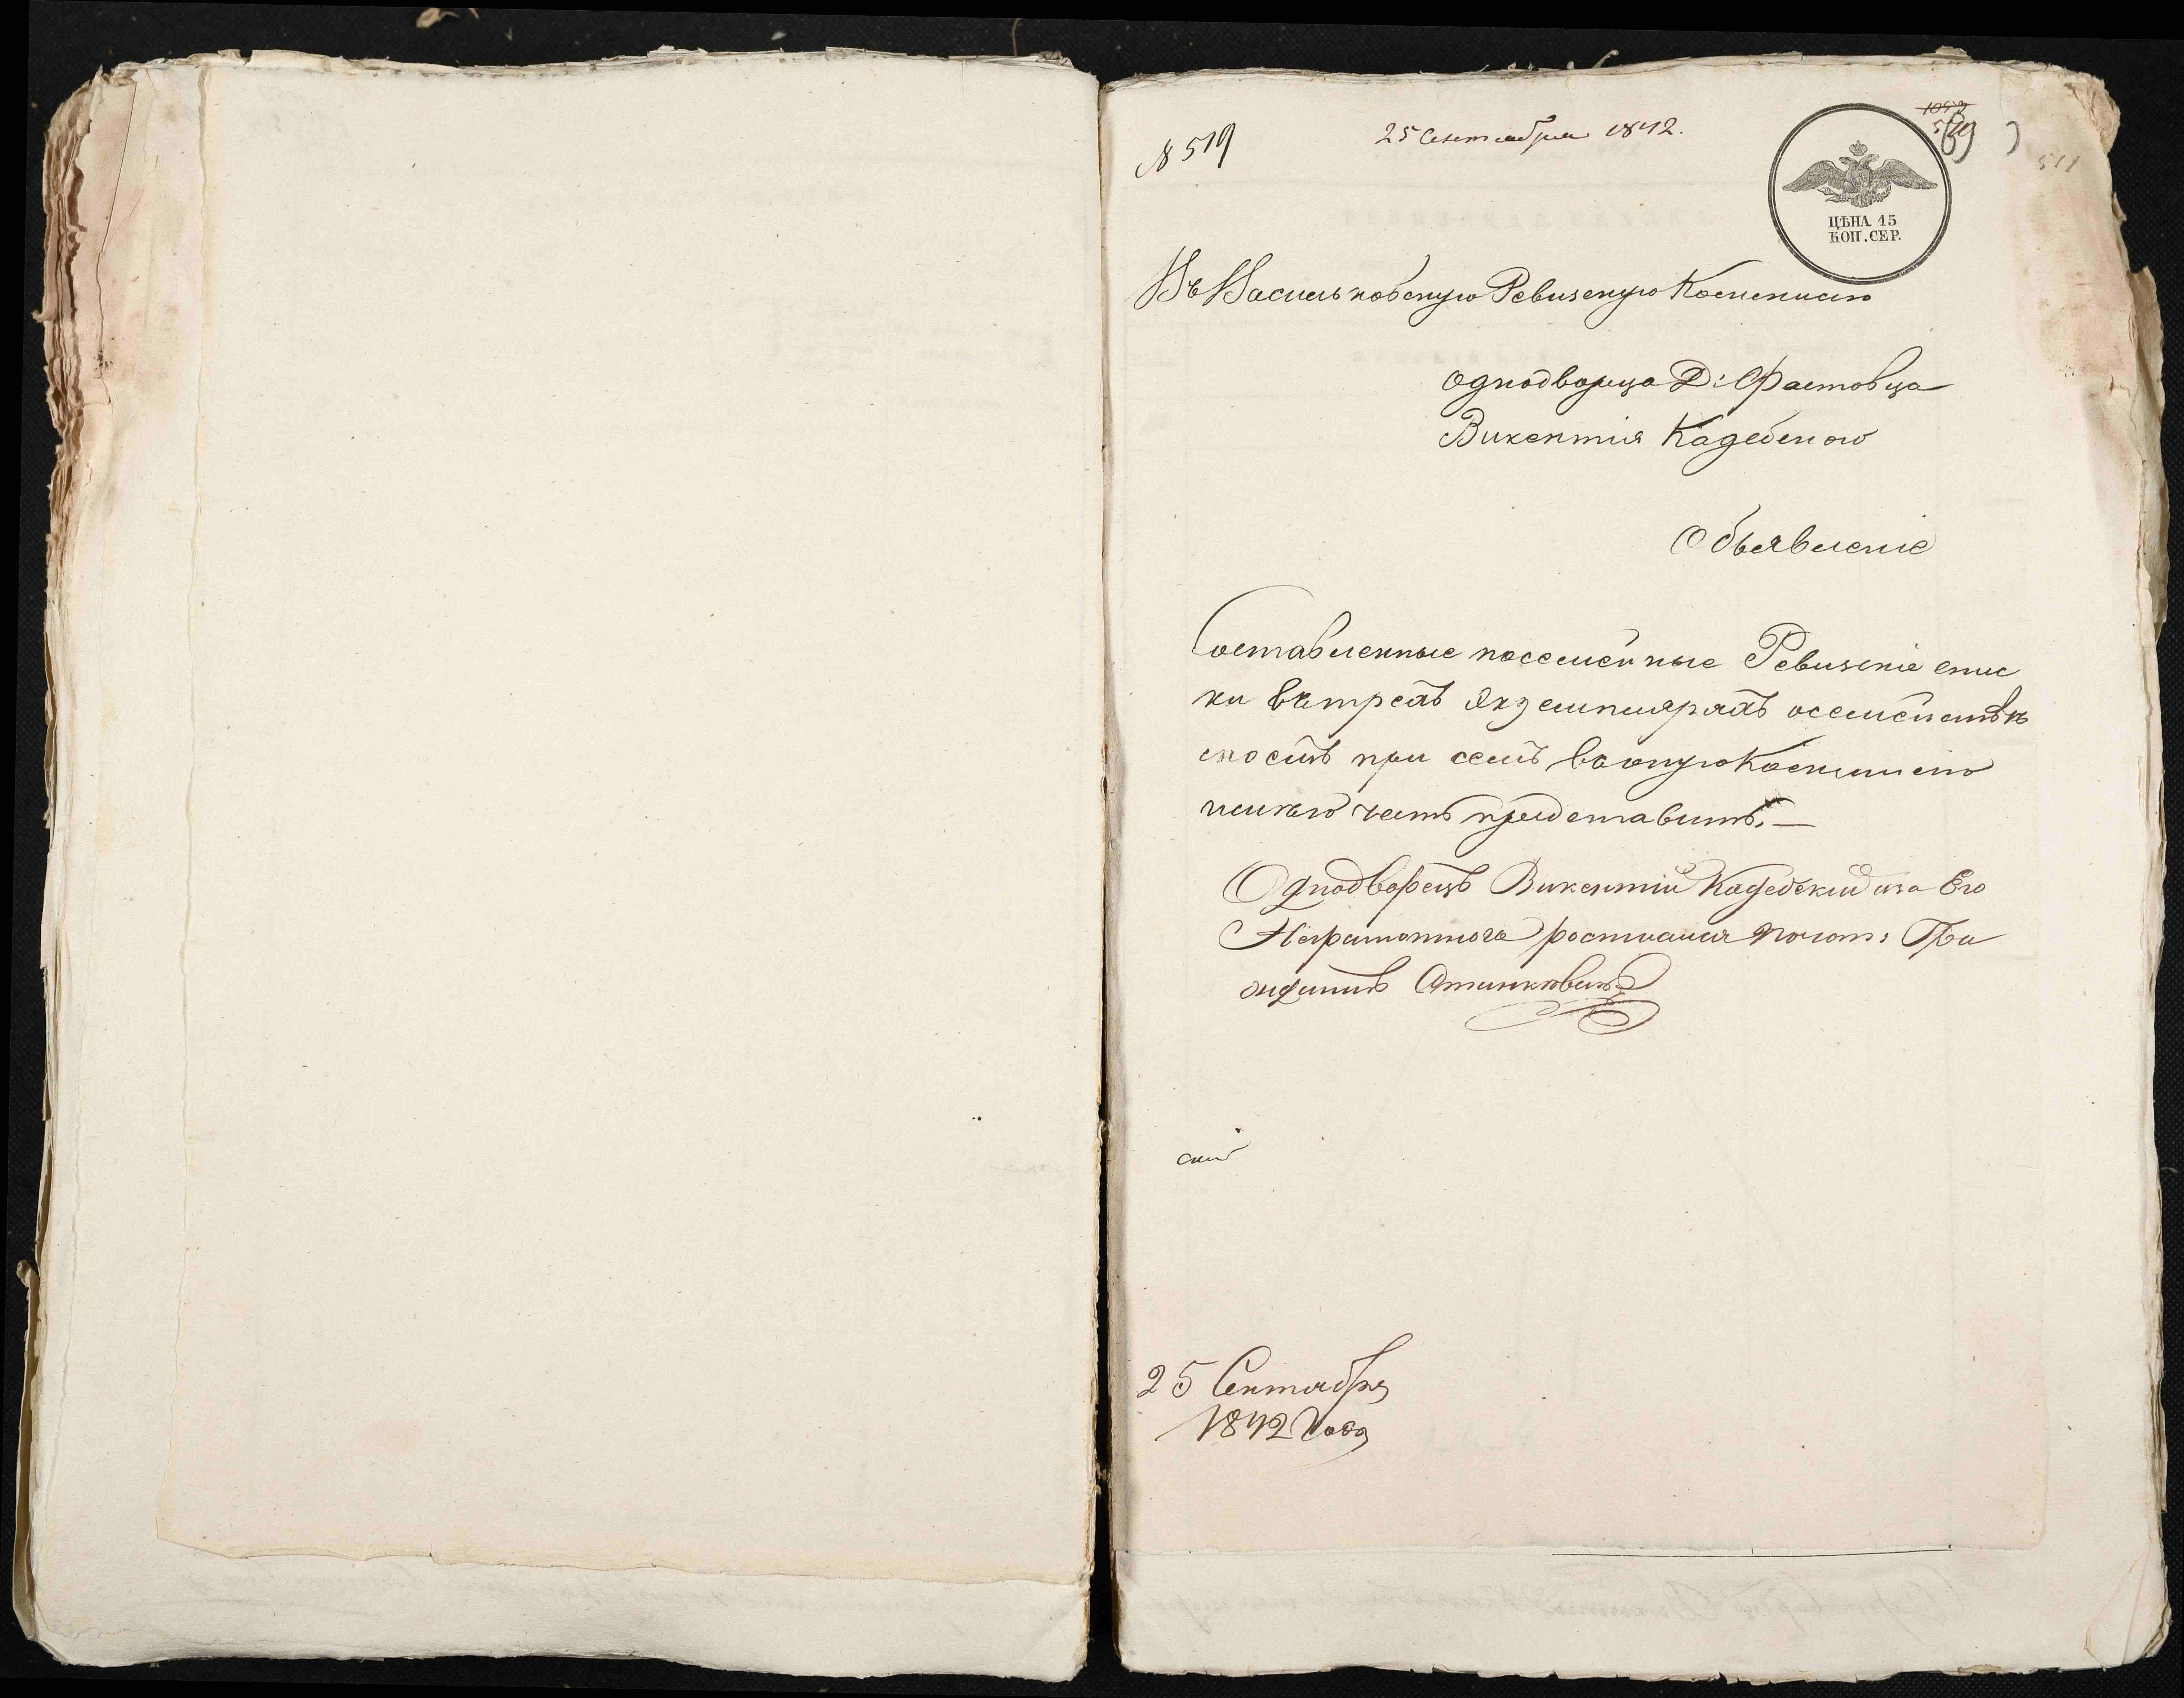 № 519
25 Сентября 1842.
1053
519
511
ЦѢНА 15
КОП. СЕР.
Въ Васильковскую Ревизскую Коммисию
однодворца Д: Фастовца
Викентия Кадебского
Объявленіе
Составленные посемейные Ревизскіе спис
ки въ трехъ Экземплярахъ о семействѣ
моемъ при семъ во оную Коммисию
честь представить. —
Однодворецъ Викентий Кадебский а за Его
Неграмотного росписался
25 Сентября
1842 Года